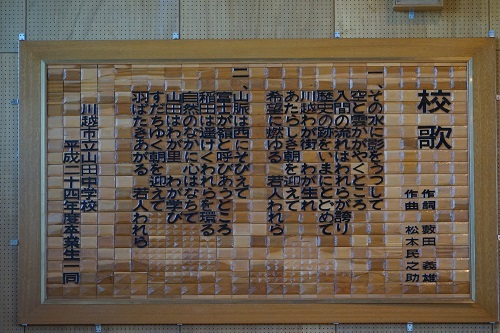 校歌
作詞 藪田 義雄
作曲 松本民之助
一、その水に影をうつして
空と雲がかがやくところ
入間の流れはわれらが誇り
歴史の跡をいまにとどめて
川越わが街 わが生れ
あたらしき朝を迎えて
希望に燃ゆる 若人われら
二、山脈は西にそびえて
富士が嶺と呼びあうところ
稲田は遥けくわれらを環る
自然のなかに心はみちて
山田はわが里 わが学び
すだちゆく朝を迎えて
羽ばたきあがる 若人われら
川越市立山田中学校
平成二十四年度卒業生一同